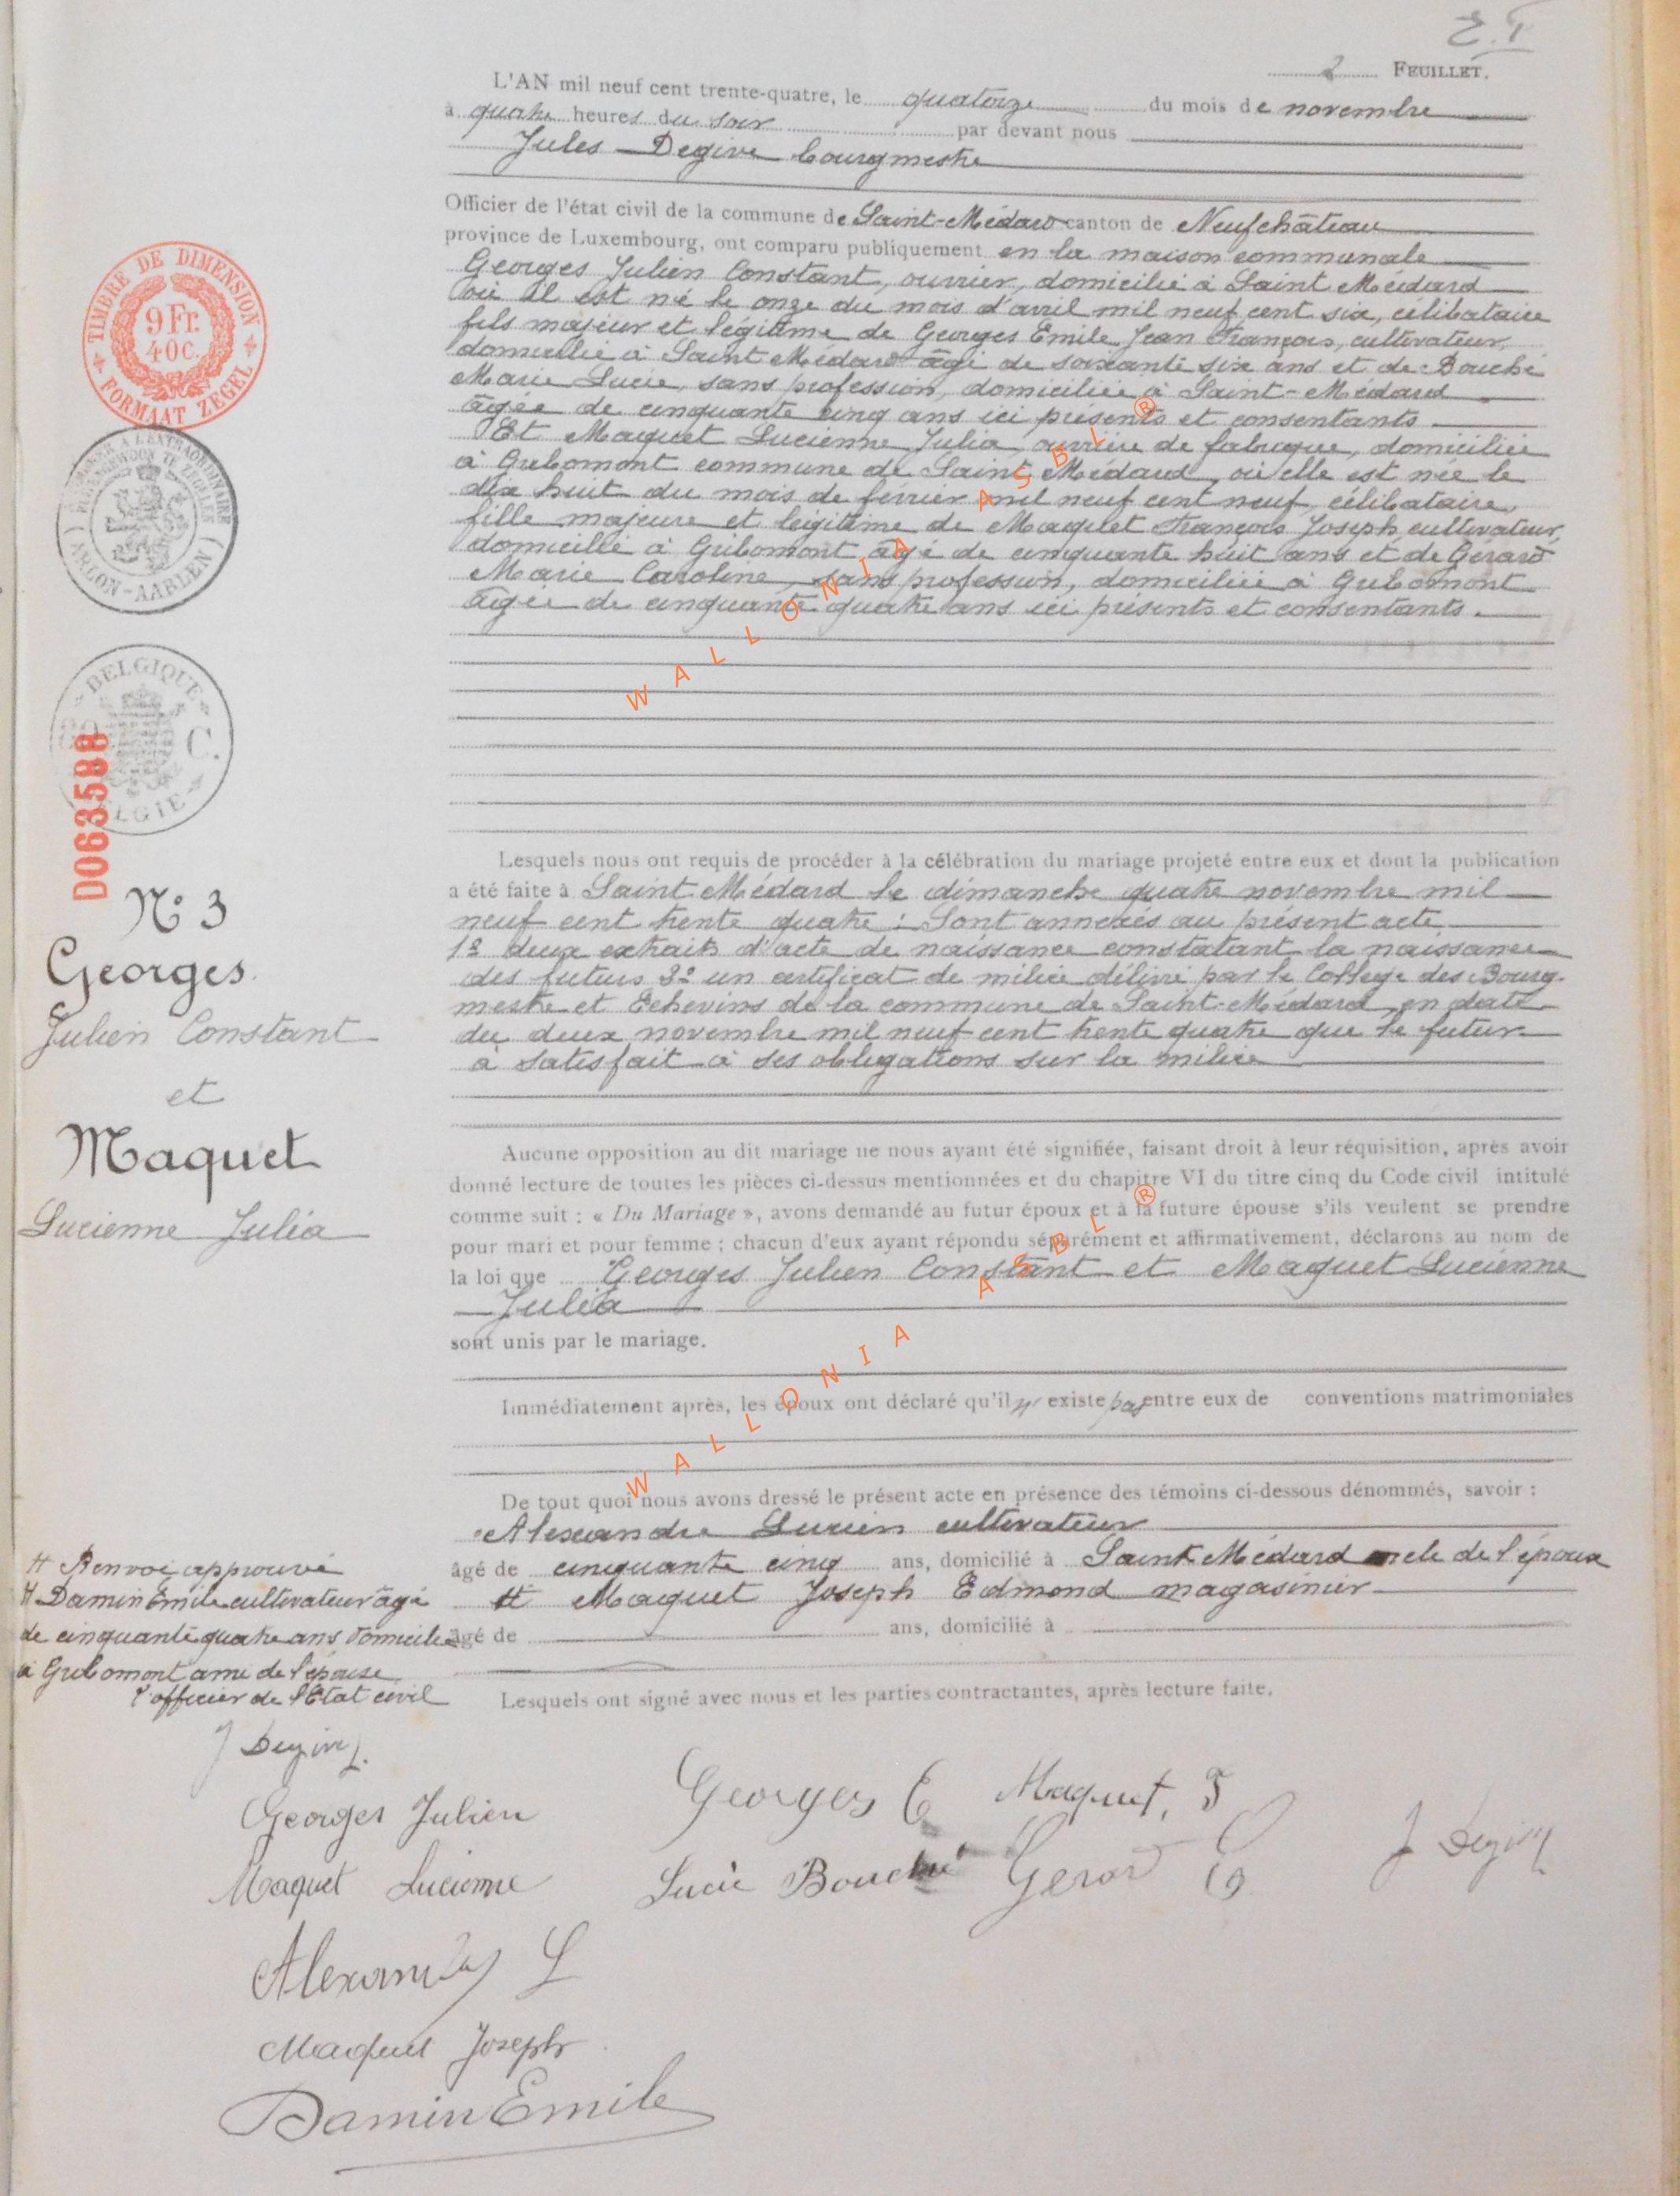 E.T
2 FEUILLET.
L'AN mil neuf cent trente-quatre, le quatorze du mois de novembre
à quatre heures du soir par devant nous
Jules Degive bourgmestre
Officier de l'état civil de la commune de Saint-Médard canton de Neufchâteau
province de Luxembourg, ont comparu publiquement en la maison communale
Georges Julien Constant, ouvrier, domicilié à Saint Médard
où il est né le onze du mois d'avril mil neuf cent six, célibataire
fils majeur et légitime de Georges Emile Jean François, cultivateur,
domicilié à Saint Médard âgé de soixante six ans et de Bouché
Marie Lucie, sans profession, domiciliée à Saint-Médard
âgée de cinquante cinq ans ici présents et consentants
Et Maquet Lucienne Julia, ouvrière de fabrique, domiciliée
à Gribomont commune de Saint Médard, où elle est née le
dix huit du mois de février mil neuf cent neuf, célibataire,
fille majeure et légitime de Maquet François Joseph cultivateur,
domicilié à Gribomont âgé de cinquante huit ans et de Gerard
Marie Caroline, sans profession, domiciliée à Gribomont
âgée de cinquante quatre ans ici présents et consentants.
Lesquels nous ont requis de procéder à la célébration du mariage projeté entre eux et dont la publication
a été faite à Saint Médard le dimanche quatre novembre mil
neuf cent trente quatre : Sont annexés au présent acte
1º deux extraits d'acte de naissance constatant la naissance
des futurs 2º un certificat de milice délivré par le Collège des Bourg-
mestre et Echevins de la commune de Saint-Médard en date
du deux novembre mil neuf cent trente quatre que le futur
à satisfait à ses obligations sur la milice
Aucune opposition au dit mariage ne nous ayant été signifiée, faisant droit à leur réquisition, après avoir
donné lecture de toutes les pièces ci-dessus mentionnées et du chapitre VI du titre cinq du Code civil intitulé
comme suit : « Du Mariage », avons demandé au futur époux et à la future épouse s'ils veulent se prendre
pour mari et pour femme ; chacun d'eux ayant répondu séparément et affirmativement, déclarons au nom de
la loi que Georges Julien Constant et Maquet Lucienne
Julia
sont unis par le mariage.
Immédiatement après, les époux ont déclaré qu'il n' existe pas entre eux de conventions matrimoniales
De tout quoi nous avons dressé le présent acte en présence des témoins ci-dessous dénommés, savoir :
Alexandre Lucien cultivateur
âgé de cinquante cinq ans, domicilié à Saint Médard oncle de l'époux
H Maquet Joseph Edmond magasinier
âgé de ans, domicilié à
Lesquels ont signé avec nous et les parties contractantes, après lecture faite.
TIMBRE DE DIMENSION
9 Fr.
40 C.
FORMAAT ZEGEL
A L'EXTRAORDINAIRE
ARLON-AARLEN
BELGIQUE
C.
BELGIE
D063588
Nº 3
Georges
Julien Constant
et
Maquet
Lucienne Julia
H Renvoi approuvé
H Damin Emile cultivateur âgé
de cinquante quatre ans domicilié
à Gribomont ami de l'épouse
l'officier de l'Etat civil
J Degive
Georges Julien
Georges E
Maquet, F
Maquet Lucienne
Lucie Bouché
Gerard C
J Degive
Alexandre L
Maquet Joseph
Damin Emile
WALLONIA ASBL ®
WALLONIA ASBL ®